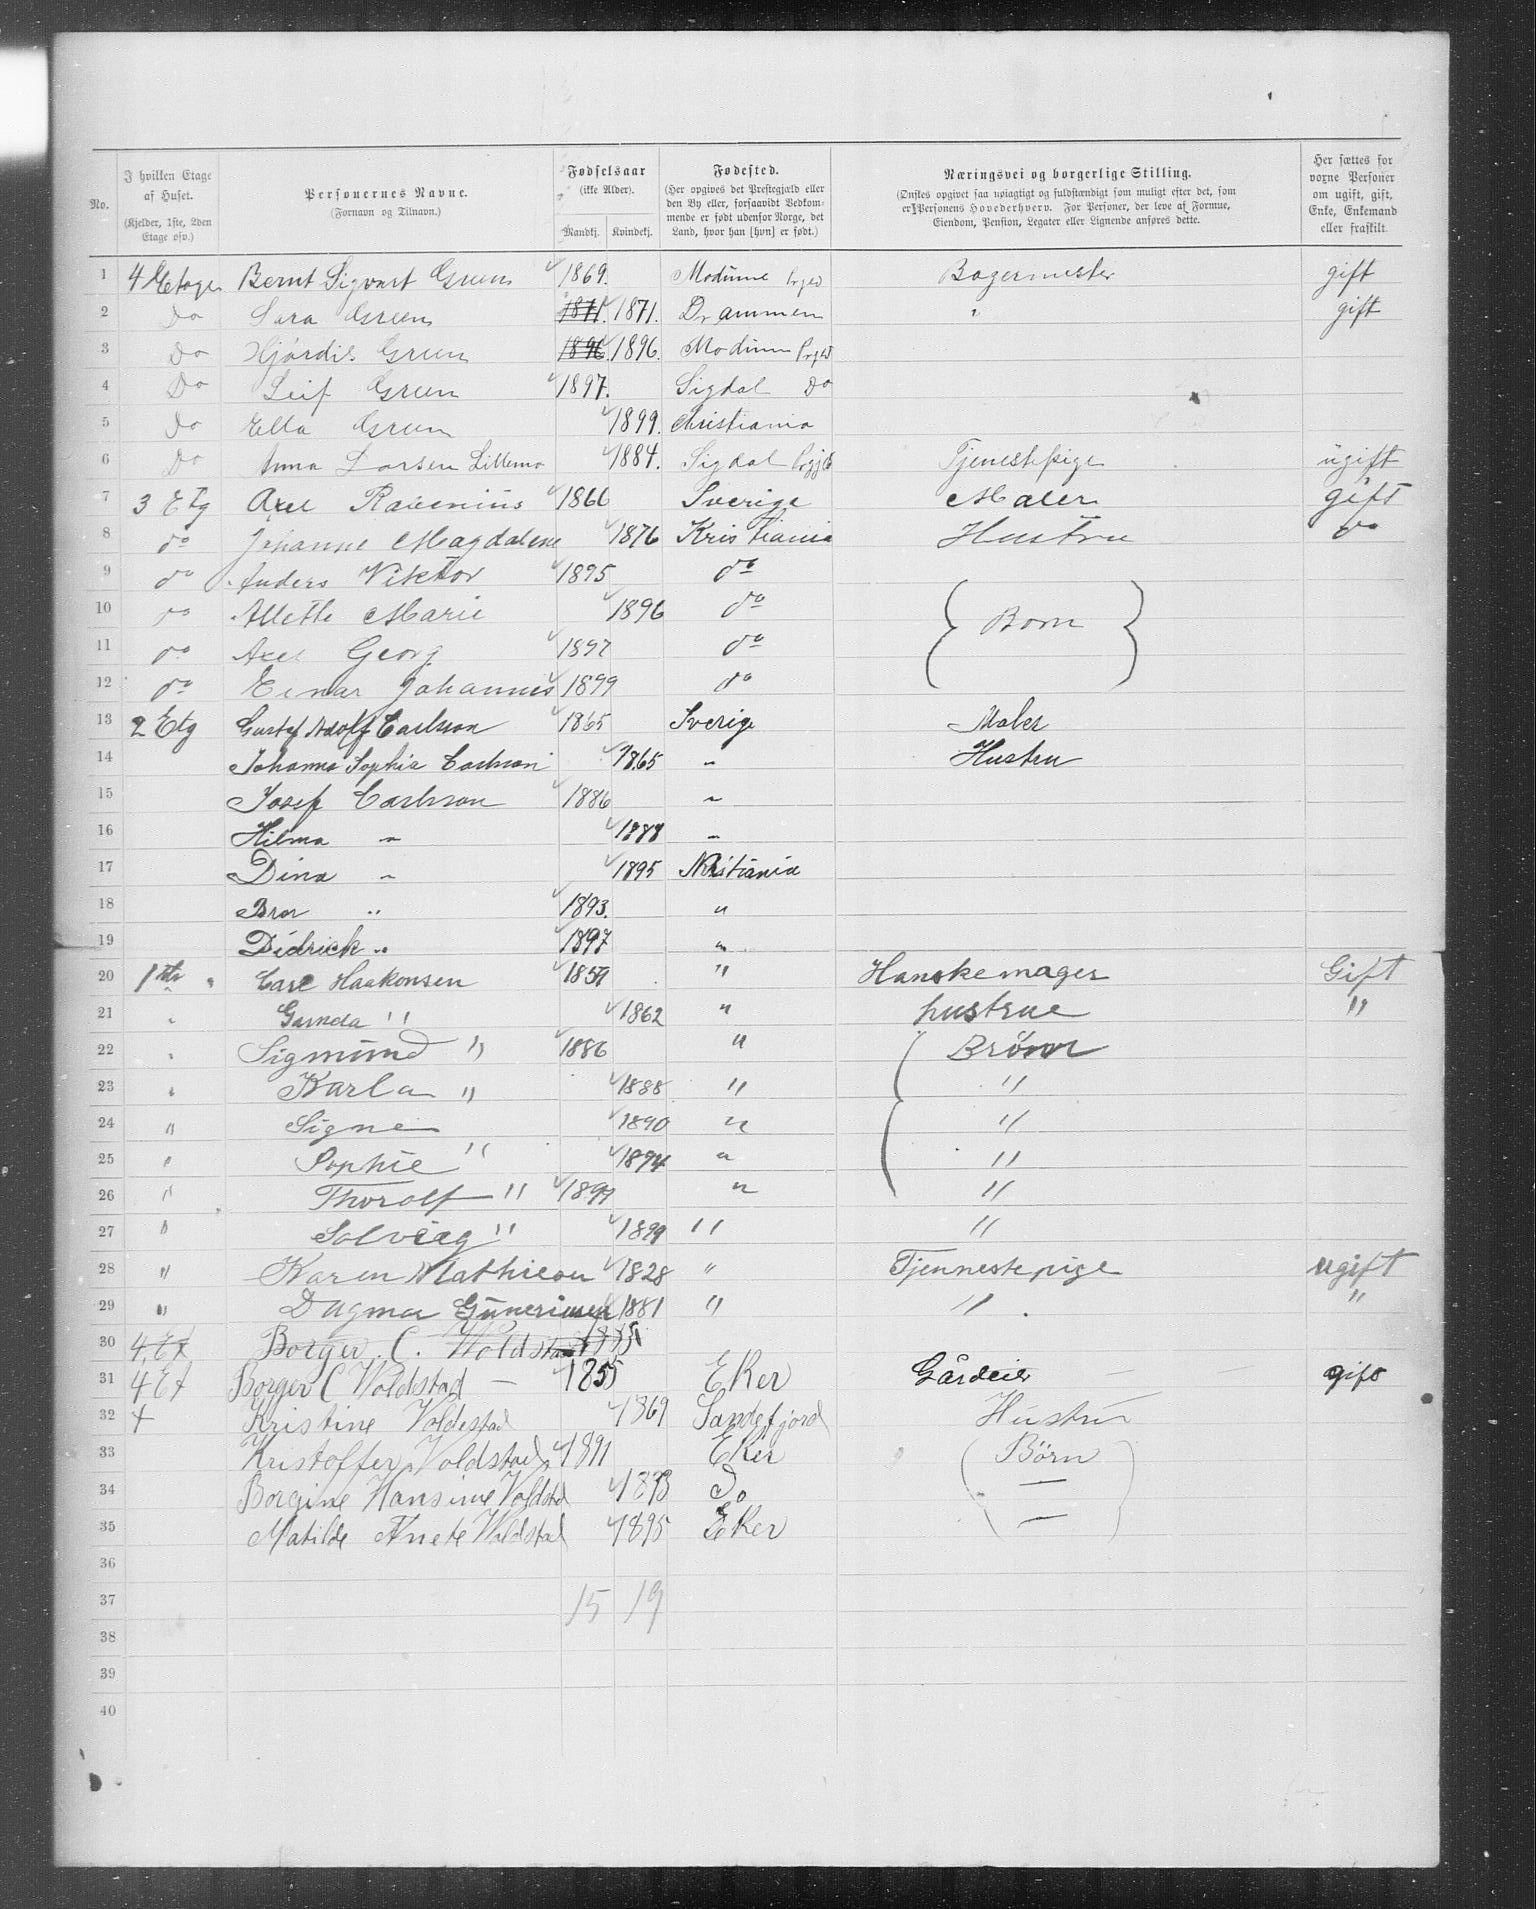 No.
I hvilken Etage af Huset. (Kjelder, 1ste, 2den Etage osv.)
Personernes Navne. (Fornavn og Tilnavn.)
Fødselsaar (ikke Alder). Mandkj. Kvindekj.
Fødested. (Her opgives det Prestegjæld eller den By eller, forsaavidt Vedkommende er født udenfor Norge, det Land, hvor han [hun] er født.)
Næringsvei og borgerlige Stilling. (Ønskes opgivet saa nøiagtigt og fuldstændigt som muligt efter det, som er Personens Hovederhverv. For Personer, der leve af Formue, Eiendom, Pension, Legater eller Lignende anføres dette.
Her sættes for voxne Personer om ugift, gift, Enke, Enkemand eller fraskilt.
1 4 Etage Bernt Sigvart Green 1869. Modume Prgld Bagermester gift
2 Do Sara Green 1871. 1871. Drammen " gift
3 Do Hjördis Green 1896. 1896. Modum Prgld
4 Do Leif Green 1897. Sigdal Do
5 Do Ella Green 1899. Christiania
6 Do Anna Larsen Lillemo 1884. Sigdal Tjenestepige ugift
7 3 Etg Axel Ravenius 1866 Sverige Maler gift
8 do Johanne Magdalene 1876 Kristiania Hustru do
9 do Anders Viktor 1895 do
10 do Allette Marie 1896 do Born
11 do Axel Georg 1897 do
12 do Einar Johannes 1899 do
13 2 Etg Gustaf Adolf Carlsson 1865 Sverige Maler
14 Johanna Sophia Carlsson 1865 " Hustru
15 Josef Carlsson 1886 "
16 Hilma " 1888 "
17 Dina " 1895 Kristiania
18 Bror " 1893. "
19 Didrick " 1897 "
20 1ste " Carl Haakonsen 1859 " Hanskemager Gift
21 " " 1862 " hustrue "
22 " Sigmund " 1886 " Brönr
23 " Karla " 1888 " "
24 " Signe 1890 " "
25 " Sophie " 1894 " "
26 " Thorolf " 1897 " "
27 " Solvieg " 1899 " "
28 " Karen Mathiesen 1828 " Tjennestepige ugift
29 " Dagmar 1881 " " "
30 4. Et Borger. C. Woldstad 1855
31 4 Et Borger C Woldstad — 1855 Eker Gårdeier — gift
32 + Kristine Voldestad 1869 Sandefjord Hustru
33 Kristoffer Voldstad 1891 Eker Børn
34 Borgine Hansine Voldstd 1893 Do —
35 Matilde Anete Woldstad 1895 Eker —
36
37 15 19
38
39
40